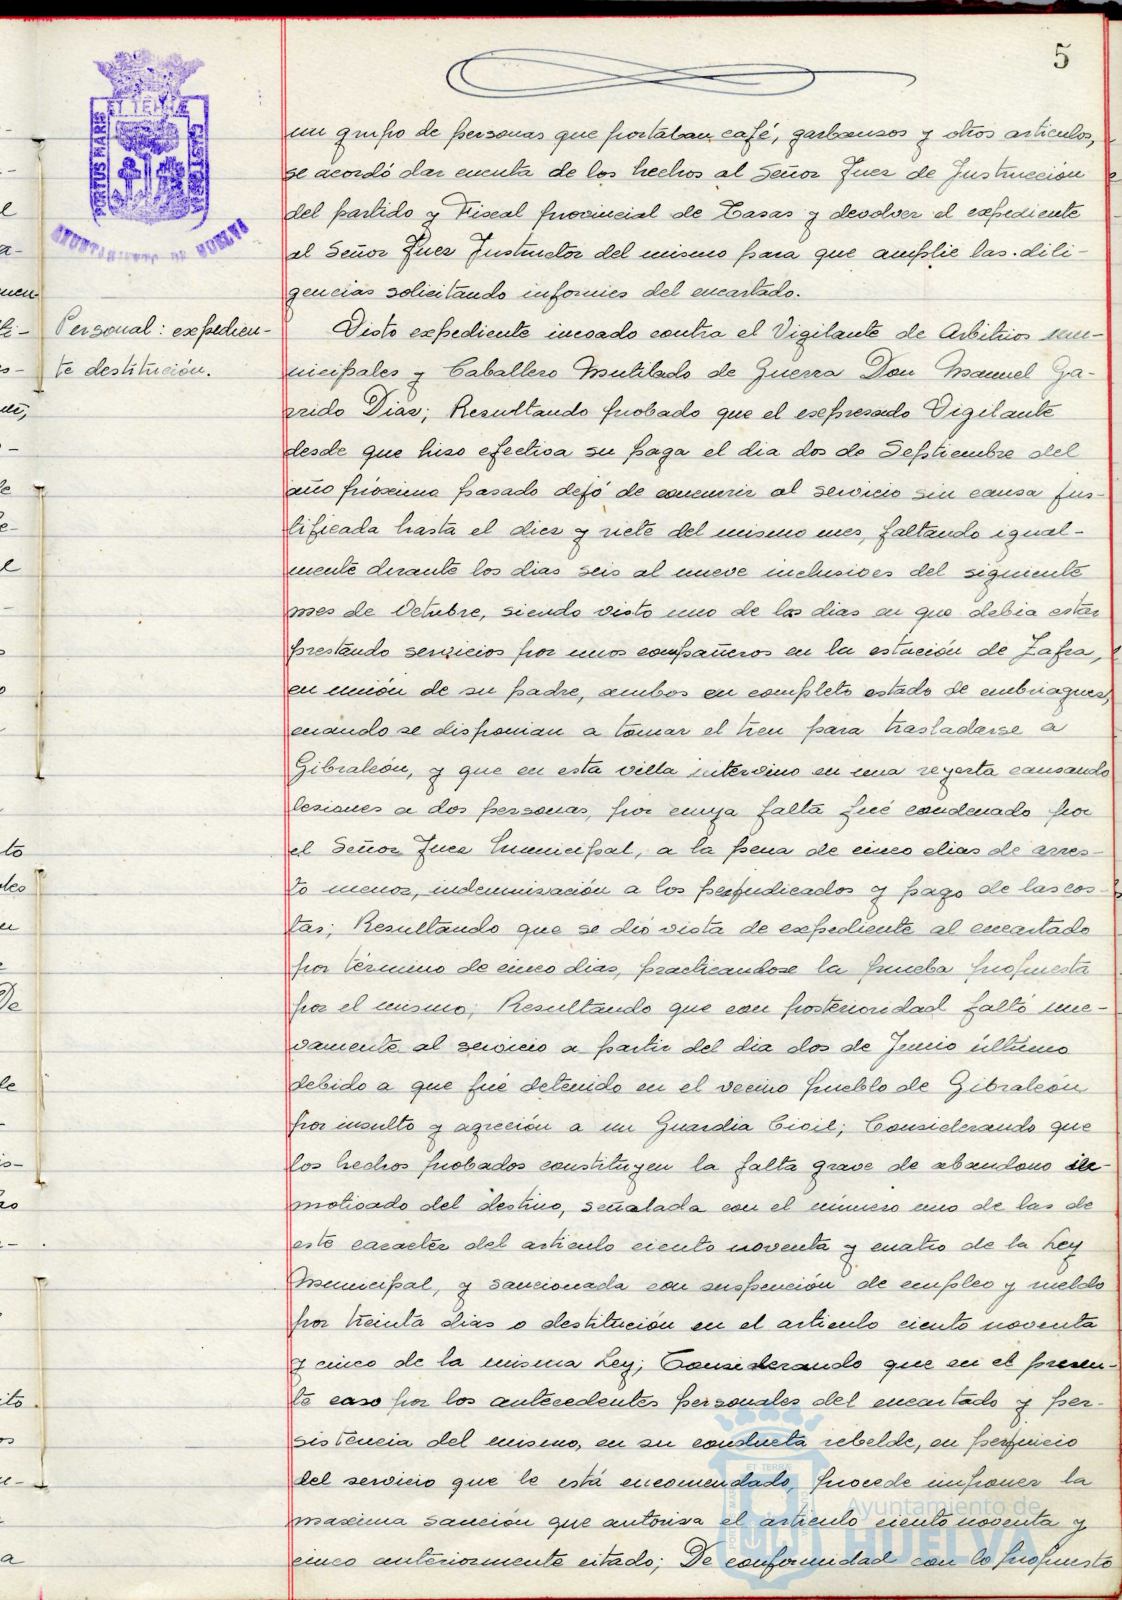 5
PORTUS MARIS
ET TERRÆ
CUSTODIA
AYUNTAMIENTO DE HUELVA
un grupo de personas que portaban café, garbansos y otros articulos,
se acordó dar cuenta de los hechos al Señor Juez de Instrucción
del partido y Fiscal provincial de Tasas y devolver el expediente
al Señor Juez Instructor del mismo para que amplie las dili-
gencias solicitando informes del encartado.
Personal: expedien-
te destitución.
Visto expediente incoado contra el Vigilante de Arbitrios mu-
nicipales y Caballero Mutilado de Guerra Don Manuel Ga-
rrido Dias; Resultando probado que el esepresado Vigilante
desde que hiso efectiva su paga el dia dos de Septiembre del
año próximo pasado dejó de concurrir al servicio sin causa jus-
tificada hasta el dies y siete del mismo mes, faltando igual-
mente durante los dias seis al nueve inclusives del siguiente
mes de Octubre, siendo visto uno de los dias en que debia estar
prestando servicios por unos compañeros en la estación de Zafra,
en unión de su padre, ambos en completo estado de embriagues,
cuando se disponian a tomar el tren para trasladarse a
Gibraleón, y que en esta villa intervino en una reyerta causando
lesiones a dos personas, por cuya falta fué condenado por
el Señor Juez Municipal, a la pena de cinco dias de arres-
to menor, indemnisación a los perjudicados y pago de las cos-
tas; Resultando que se dió vista de expediente al encartado
por término de cinco dias, practicandose la prueba propuesta
por el mismo; Resultando que con posterioridad faltó nue-
vamente al servicio a partir del dia dos de Junio último
debido a que fué detenido en el vecino pueblo de Gibraleón
por insulto y agreción a un Guardia Civil; Considerando que
los hechos probados constituyen la falta grave de abandono in-
motivado del destino, señalada con el número uno de las de
este caracter del articulo ciento noventa y cuatro de la Ley
Municipal, y sancionada con suspención de empleo y sueldo
por treinta dias o destitución en el articulo ciento noventa
y cinco de la misma Ley; Considerando que en el presen-
te caso por los antecedentes personales del encartado y per-
sistencia del mismo, en su conducta rebelde, en perjuicio
del servicio que le está encomendado, procede imponer la
maxima sanción que autorisa el articulo ciento noventa y
cinco anteriormente citado; De conformidad con lo propuesto
Ayuntamiento de
HUELVA